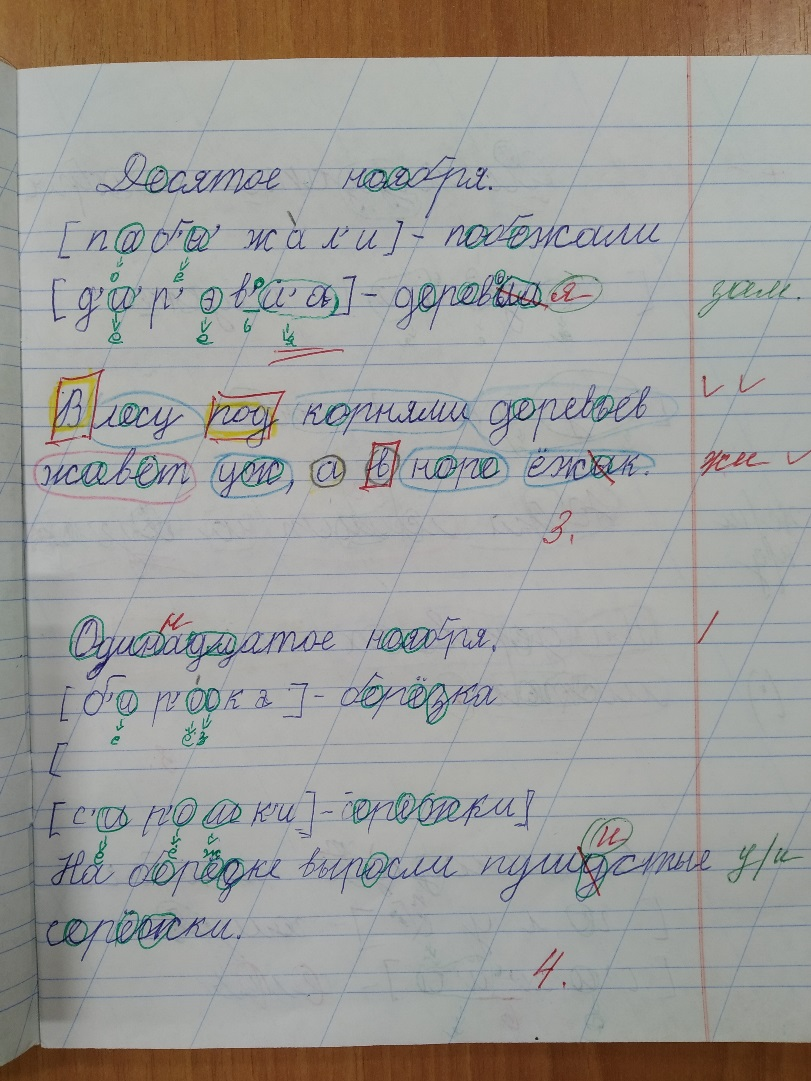 Десятое ноября.
[п а б' а' ж а л' и] - побежали
о е
[д' а' р' э в' а' а] - деревня я зам.
е е ь я
В лесу под корнями деревьев
живёт уж, а в норе ёжик. жи
3.
н
Одинадцатое ноября.
[б' а р' о с к а] - берёзка
е ё з
[
[с' а р' о ш к' и] - серёжки]
е ё ж
и
На берёзке выросли пушустые у/и
серёжки.
4.